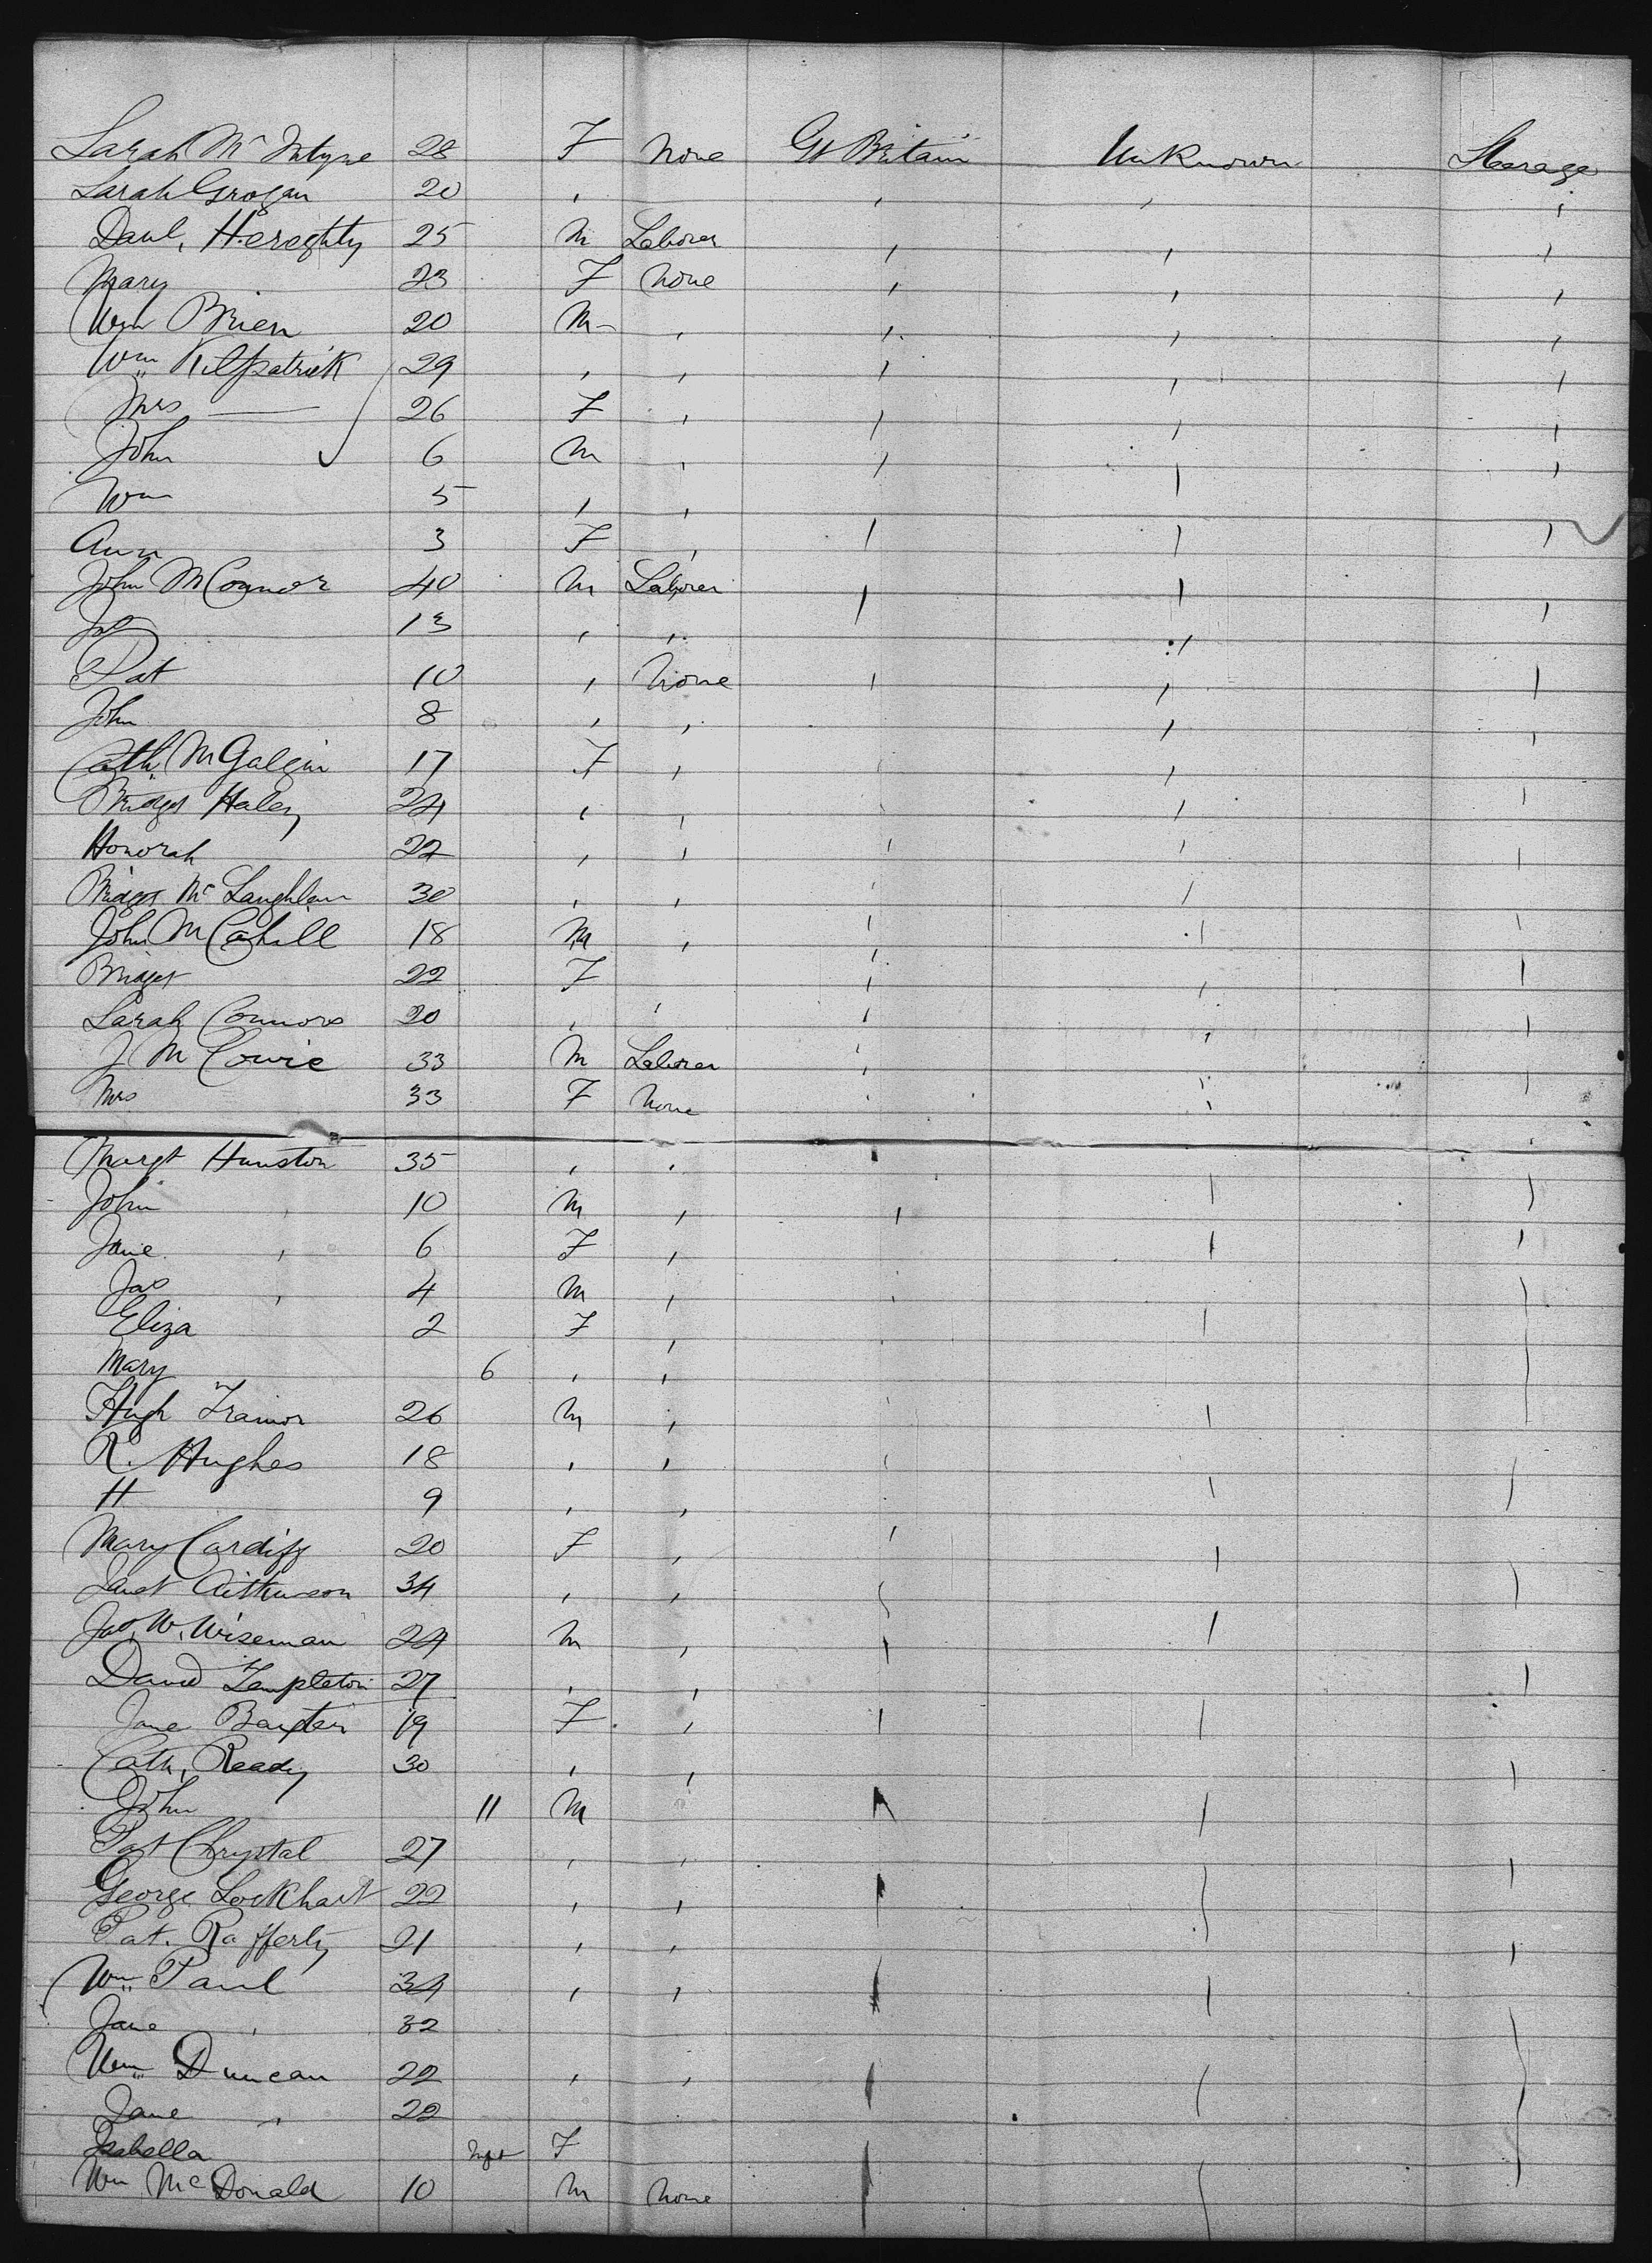 Sarah McIntyre 28 F None Gt Britain Unknown Stearage
Sarah Grogan 20 , , , ,
Danl, Heraghty 25 M Laborer , , ,
Mary 23 F None , , ,
Wm Brien 20 M , , , ,
Wm Kilpatrick 29 , , , , ,
Mrs — 26 F , , , ,
John 6 M , , , ,
Wm 5 , ,
Ann 3 F , , , ,
John McConnor 40 M Laborer , ,
Jas 13 , , , ,
Pat 10 , None , , ,
John 8 , , , ,
Cath. 17 F , , ,
Bridget Haley 24 , , , , ,
Honorah 22 , , , , ,
Bridget McLaughlan 30 , , , ,
John McCahill 18 M , , , ,
Bridget 22 F , , ,
Sarah Connors 20 , , , , ,
J McCowie 33 M Laborer , , ,
Mrs 33 F None , ,
Margt Hunston 35 , , ,
John , 10 M , , , ,
Jane , 6 F , , ,
Jas , 4 M , , ,
Eliza 2 F , ,
Mary 6 , ,
Hugh Trainor 26 M , , ,
R. Hughes 18 , , , ,
H 9 , , ,
Mary Cardiff 20 F , , ,
Janet Aitkinson 34 , , , ,
Jas. W. Wiseman 24 M , , ,
David Templeton 27 , , ,
Jane Baxter 19 F , , ,
Cath, Ready 30 , , ,
John 11 M , ,
Pat Chrystal 27 , , ,
George Lockhart 22 , , , ,
Pat. Rafferty 21 , , ,
Wm Paul 34 , , , ,
Jane , 32
Wm Duncan 22 , , , ,
Jane , 22
Isabella Inft F
Wm McDonald 10 M None , ,